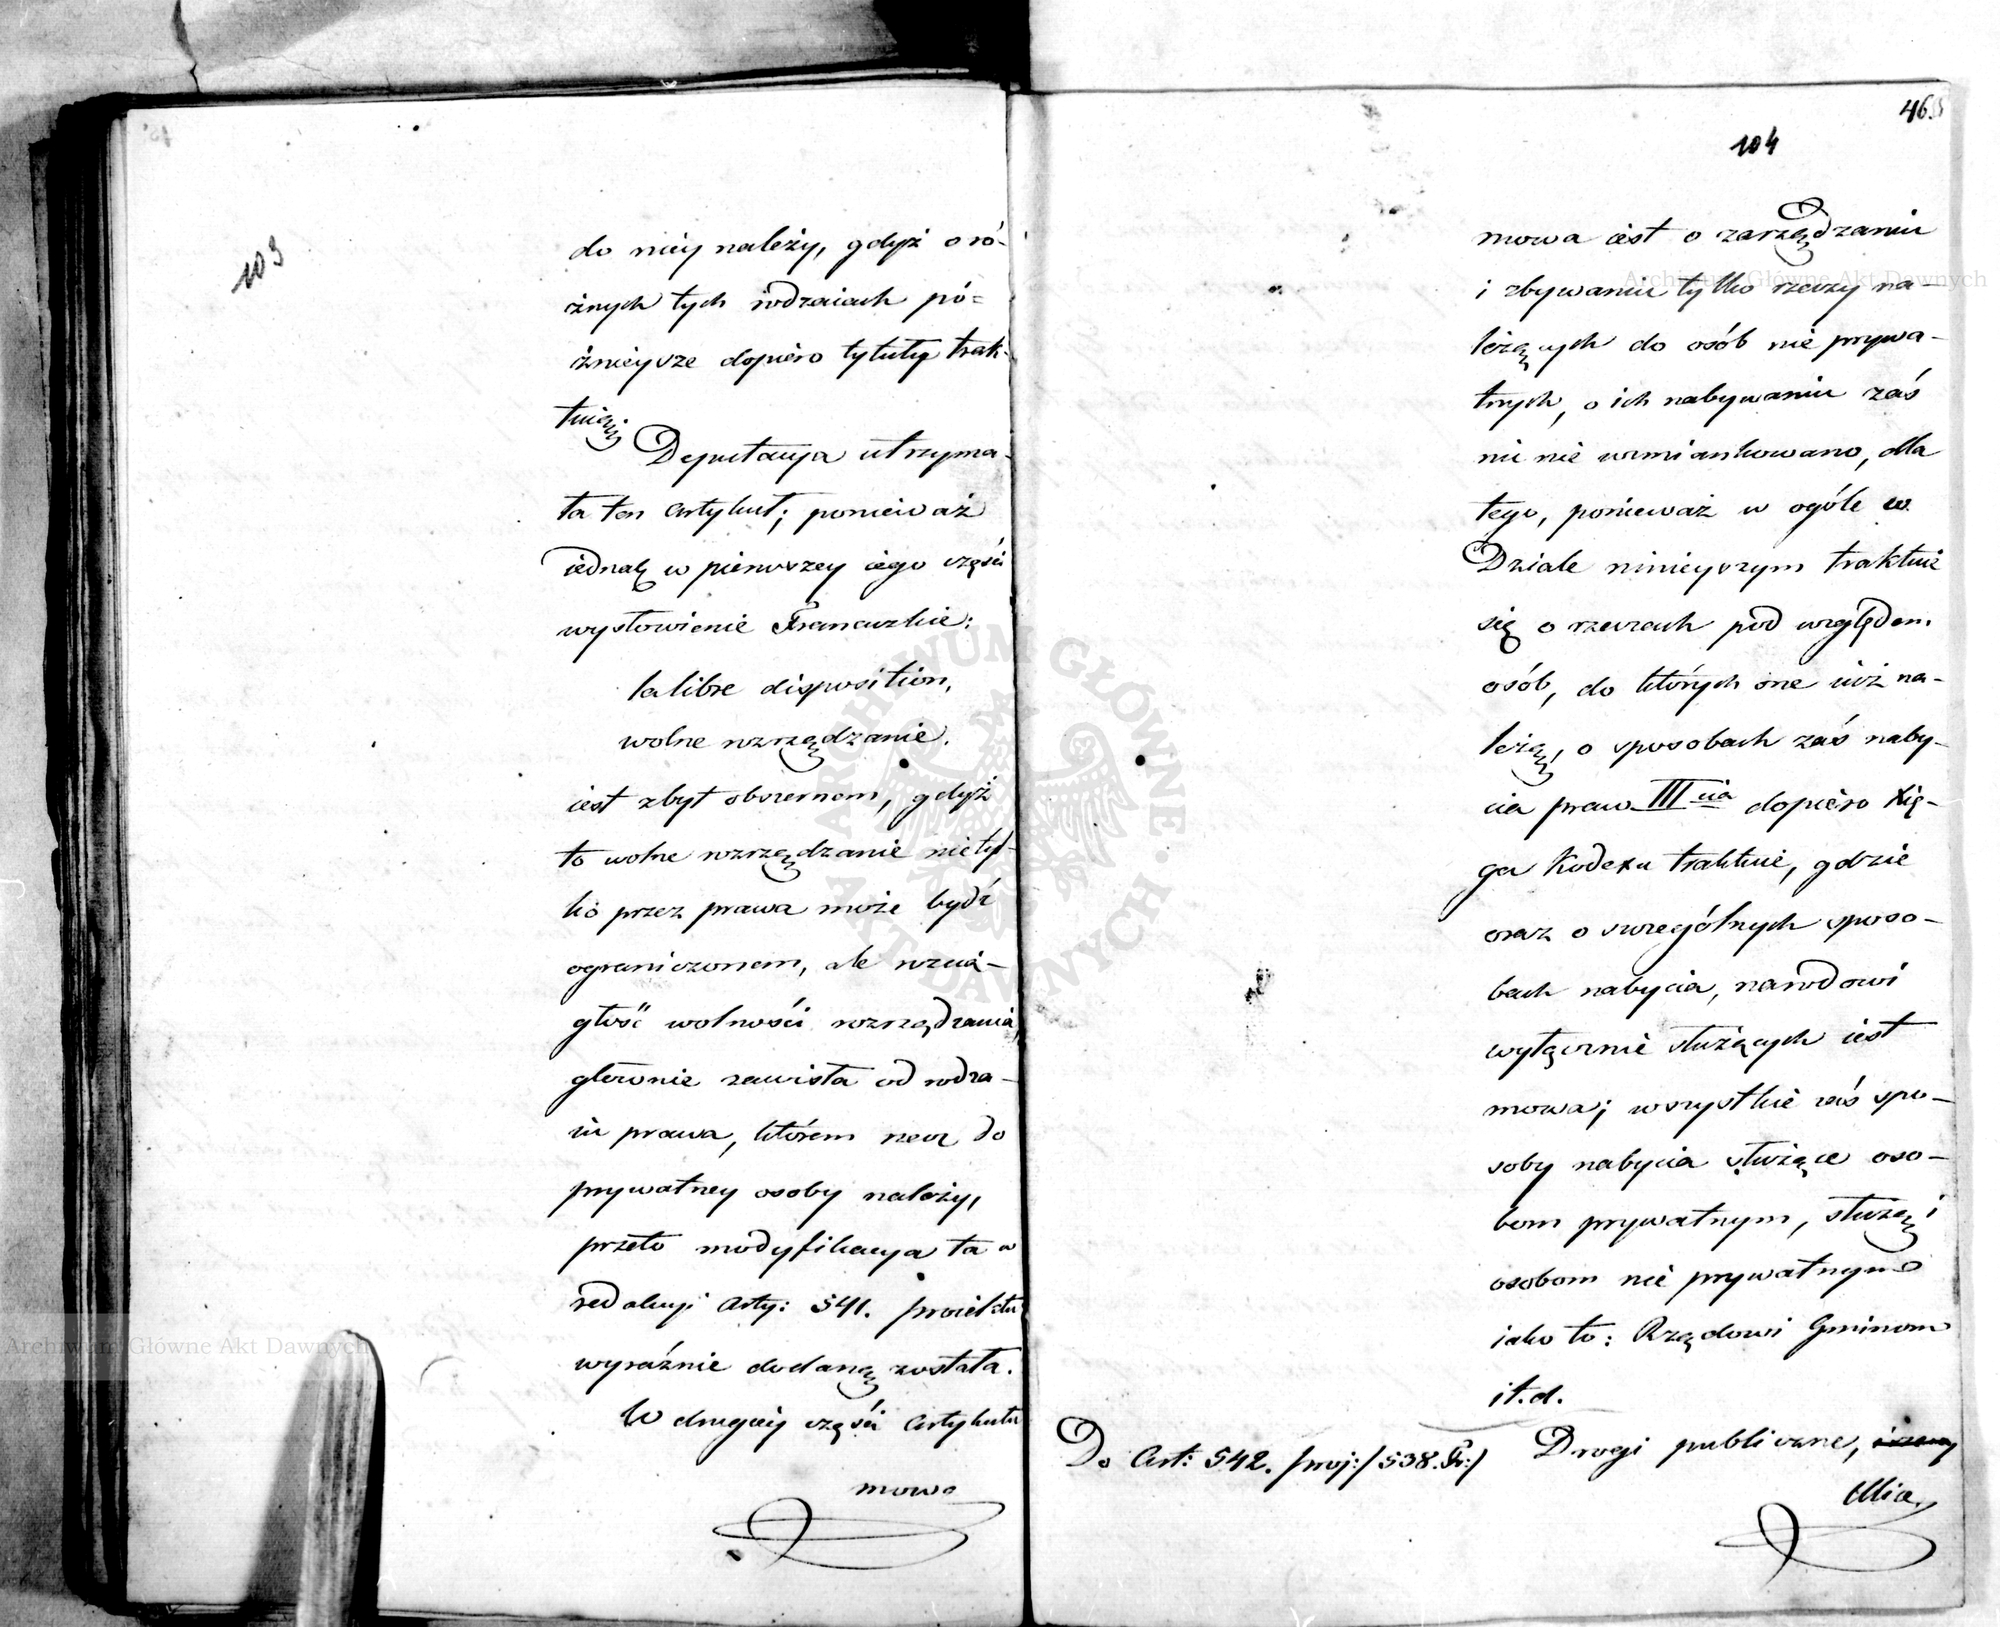 103
do niéy należy, gdyż o ró-
żnych tych rodzaiach pó=
żnieysze dopiéro tytuły trak-
tuią.
Deputacya utrzyma-
ła ten artykuł; ponieważ
iednak w pierwszey iego części
wysłowienie Francuzkie:
la libre disposition,
wolne rozrządzanie.
iest zbyt obszernem, gdyż
to wolne rozrządzanie nietyl-
ko przez prawa może bydź
ograniczonem, ale rozcią-
głość wolności rozrządzania,
głównie zawisła od rodza-
iu prawa, którem rzecz do
prywatney osoby należy,
przeto modyfikacya ta w
redakcyi Arty: 541. proiektu
wyraźnie dodaną została.
W drugiéy części Artykułu
mowa
468
104
mowa iest o zarządzaniu
i zbywaniu tylko rzeczy na-
leżących do osób nie prywa-
tnych, o ich nabywaniu zaś
nic nie wzmiankowano, dla
tego, ponieważ w ogóle w
Dziale ninieyszym traktuie
się o rzeczach pod względem
osób, do których one iuż na-
leżą, o sposobach zaś naby-
cia praw III cia dopiéro Xię-
ga Kodexu traktuie, gdzie
oraz o szczególnych sposo-
bach nabycia, narodowi
wyłącznie służących iest
mowa; wszystkie zaś spo-
soby nabycia służące oso-
bom prywatnym, służą i
osobom nie prywatnym
iako to: Rządowi Gminom
i t. d.
Do Art: 542. proj: /538. Fr:/ Drogi publiczne,
Ulice,
Archiwum Główne Akt Dawnych
Archiwum Główne Akt Dawnych
ARCHIWUM GŁÓWNE AKT DAWNYCH